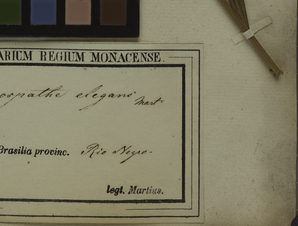 ARIUM REGIUM MONACENSE.
ospathe elegans Mart
Brasilia provinc. Rio Negro
legt. Martius.